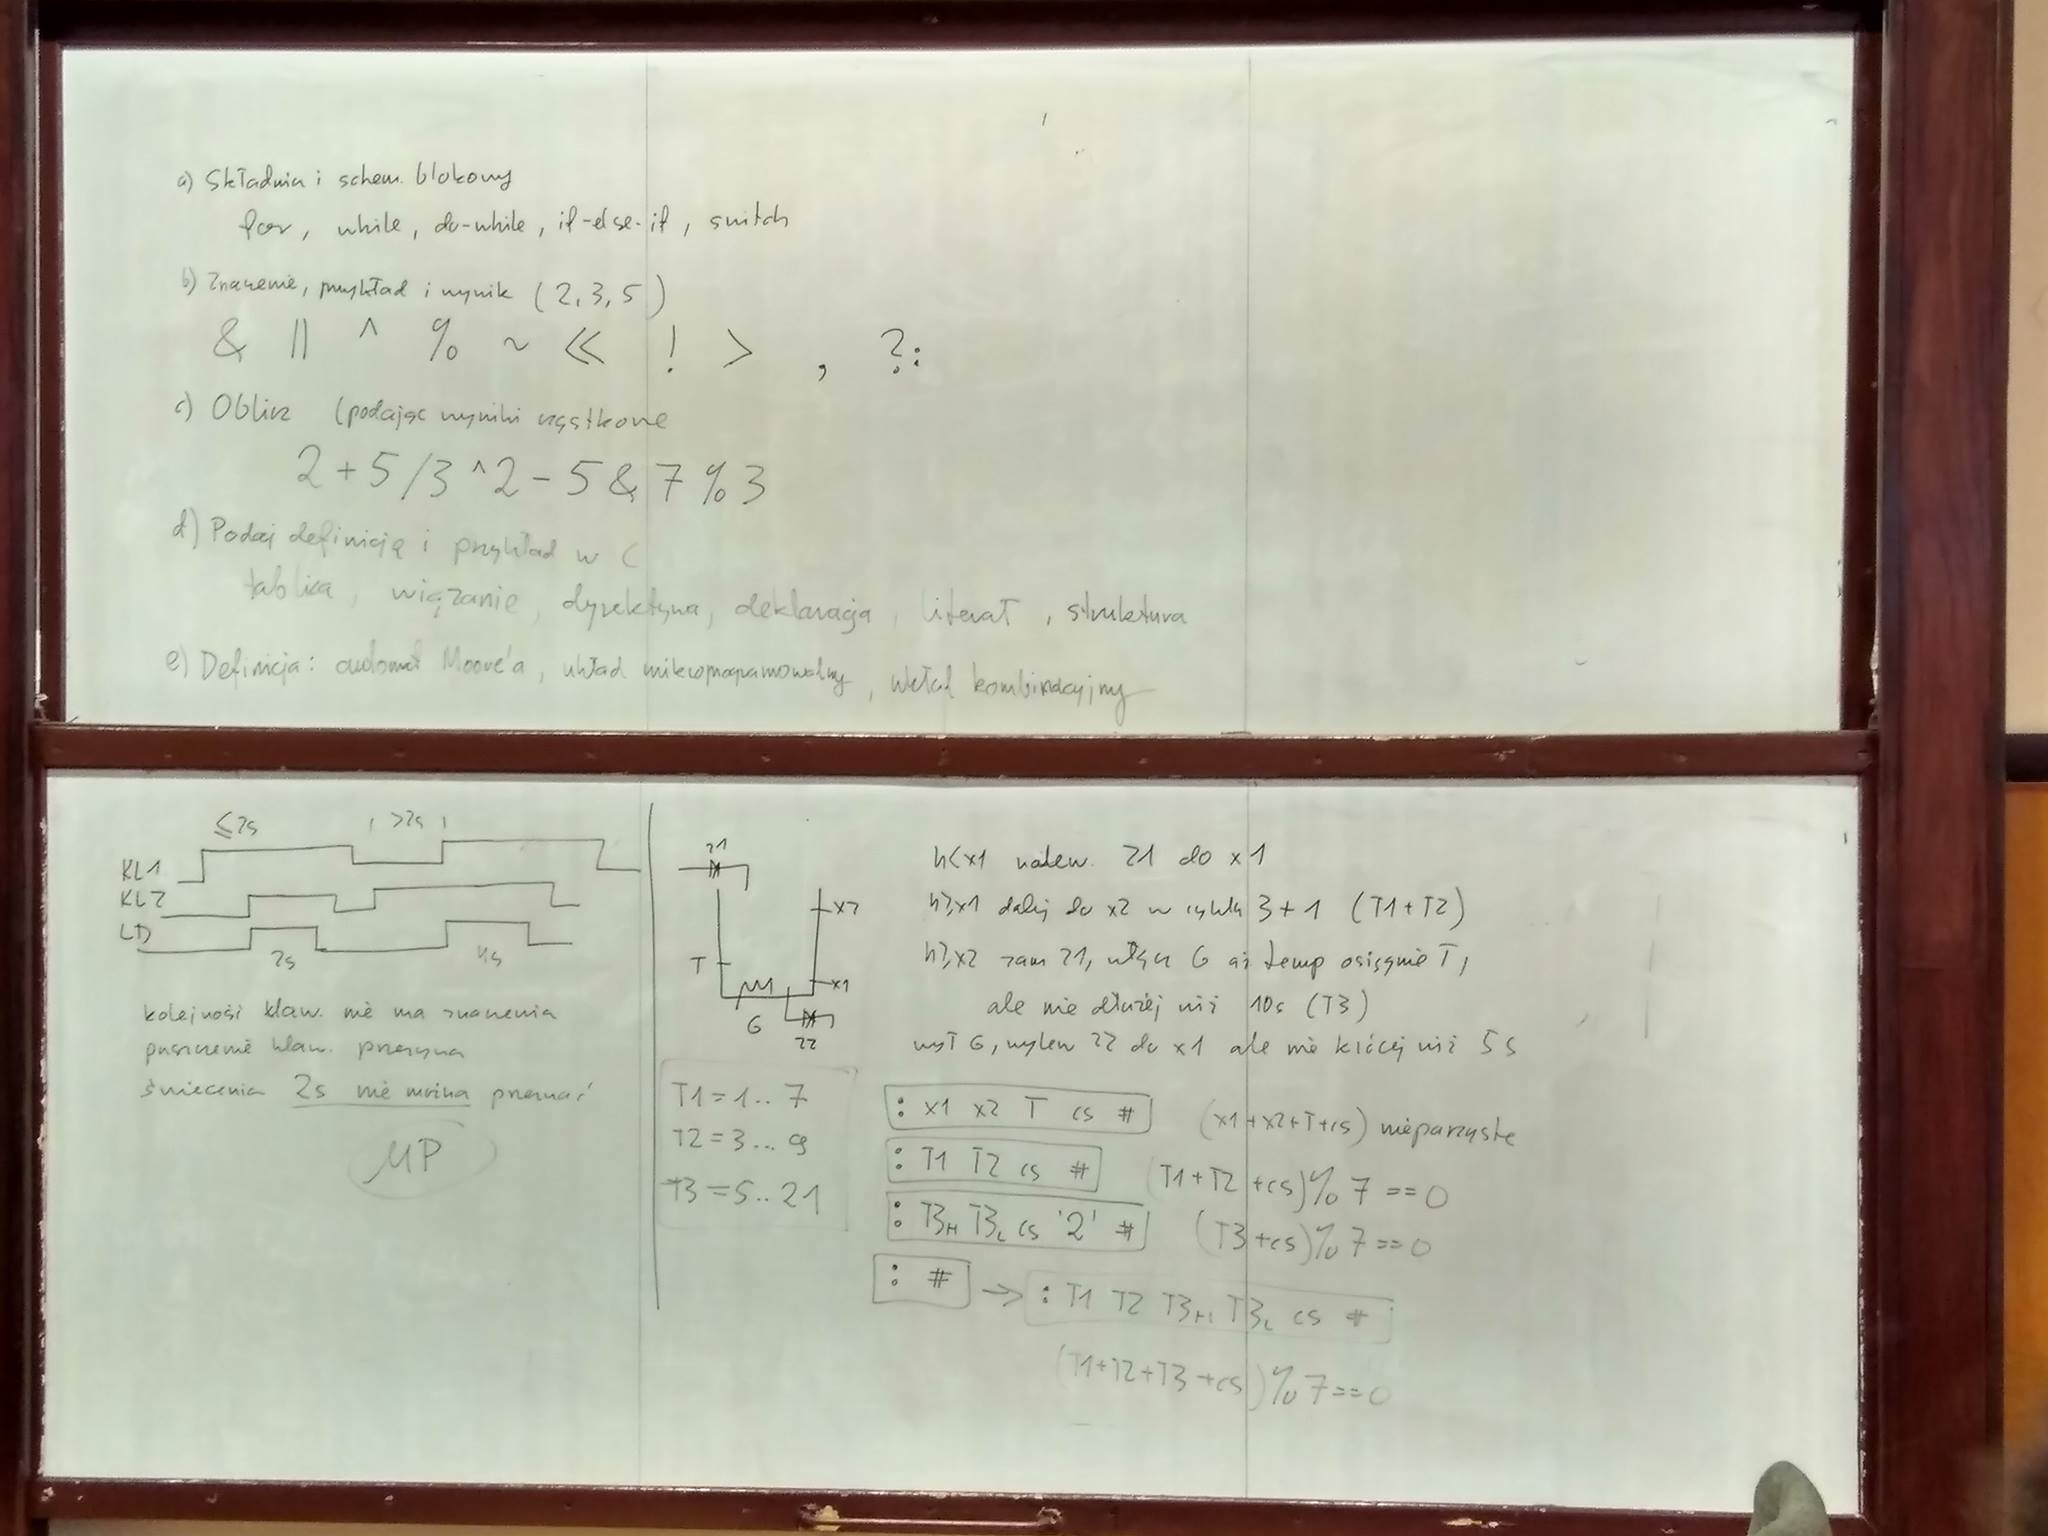 a) Składnia i schem. blokowy
for, while, do-while, if-else-if, switch
b) Znaczenie, przykład i wynik (2,3,5)
& || ^ % ~ << ! > , ?:
c) Oblicz (podając wyniki cząstkowe
2+5/3^2-5&7%3
d) Podaj definicję i przykład w C
tablica, wiązanie, dyrektywa, deklaracja, literał, struktura
e) Definicja: automat Moore'a, układ mikroprogramowalny, układ kombinacyjny
≤2s >2s
KL1
KL2
LD
2s 4s
kolejność klaw. nie ma znaczenia
puszczenie klaw. przerywa
świecenia 2s nie można przerwać
MP
z1
x2
T
x1
G
z2
T1=1..7
T2=3...9
T3=5..21
h<x1 nalew. z1 do x1
h≥x1 dalej do x2 w cyklu 3+1 (T1+T2)
h≥x2 zam z1, włącz G aż temp osiągnie T,
ale nie dłużej niż 10s (T3)
wył G, wylew z2 do x1 ale nie krócej niż 5s
: x1 x2 T cs # (x1+x2+T+cs) nieparzyste
: T1 T2 cs # (T1+T2+cs)%7==0
: T3H T3L cs '2' # (T3+cs)%7==0
: # → : T1 T2 T3H T3L cs #
(T1+T2+T3+cs)%7==0